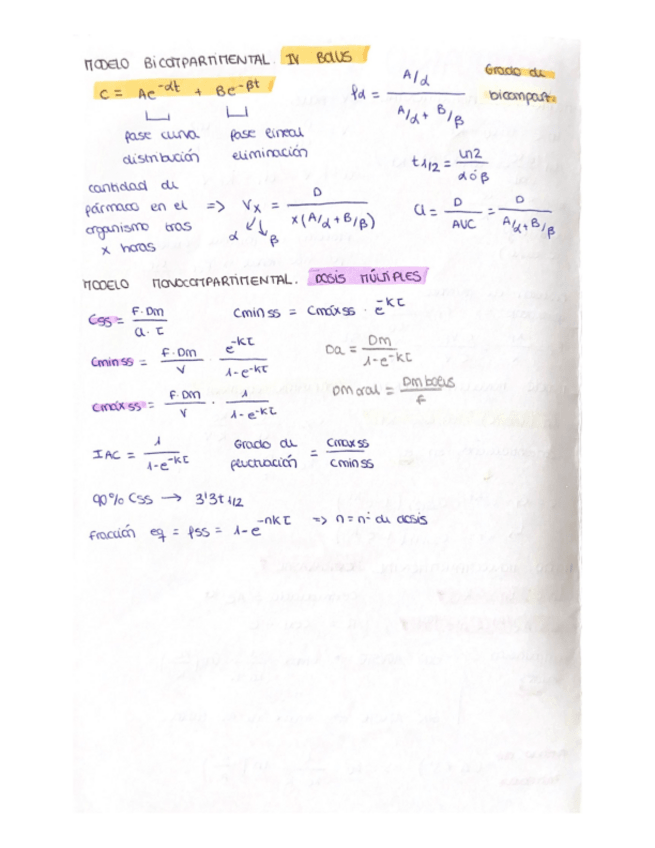 MODELO BICOMPARTIMENTAL. IV BOLUS
C = Ae^-αt + Be^-βt
fase curva distribución
fase lineal eliminación
fα = (A/α) / (A/α + B/β)
Grado de bicompart.
t1/2 = ln2 / α ó β
cantidad de fármaco en el organismo tras x horas => Vx = D / x(A/α + B/β)
α β
Cl = D / AUC = D / (A/α + B/β)
MODELO MONOCOMPARTIMENTAL. DOSIS MÚLTIPLES
Css = F·Dm / Cl·τ
Cmin ss = Cmáx ss · e^-kτ
Cmin ss = F·Dm / V · e^-kτ / 1-e^-kτ
Da = Dm / 1-e^-kτ
Cmáx ss = F·Dm / V · 1 / 1-e^-kτ
Dm oral = Dm bolus / F
IAC = 1 / 1-e^-kτ
Grado de fluctuación = Cmáx ss / Cmin ss
90% Css → 3'3 t1/2
Fracción eq = fss = 1-e^-nkτ => n = nº de dosis